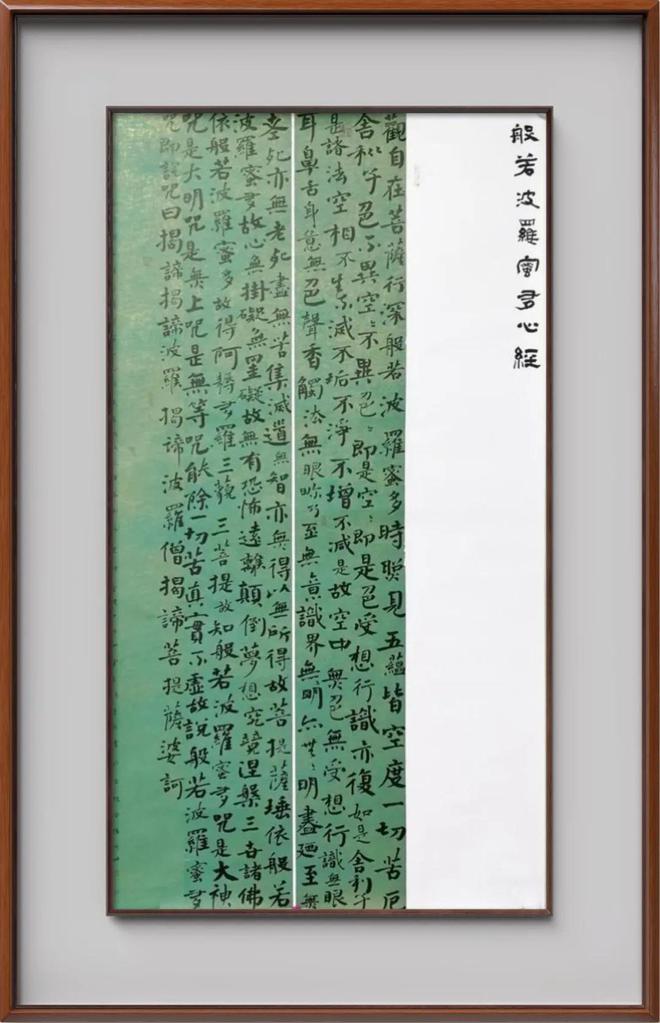 般若波羅蜜多心經
觀自在菩薩行深般若波羅蜜多時照見五蘊皆空度一切苦厄
舍利子色不異空〻不異色〻即是空〻即是色受想行識亦復如是舍利子
是諸法空相不生不滅不垢不淨不增不減是故空中無色無受想行識無眼
耳鼻舌身意無色聲香觸法無眼界乃至無意識界無明亦無〻明盡廼至無
老死亦無老死盡無苦集滅道無智亦無得以無所得故菩提薩埵依般若
波羅蜜多故心無掛礙無罣礙故無有恐怖遠離顛倒夢想究竟涅槃三世諸佛
依般若波羅蜜多故得阿耨多羅三藐三菩提故知般若波羅蜜多咒是大神
咒是大明咒是無上咒是無等咒能除一切苦真實不虛故說般若波羅蜜多
咒即說咒曰揭諦揭諦波羅揭諦波羅僧揭諦菩提薩婆訶